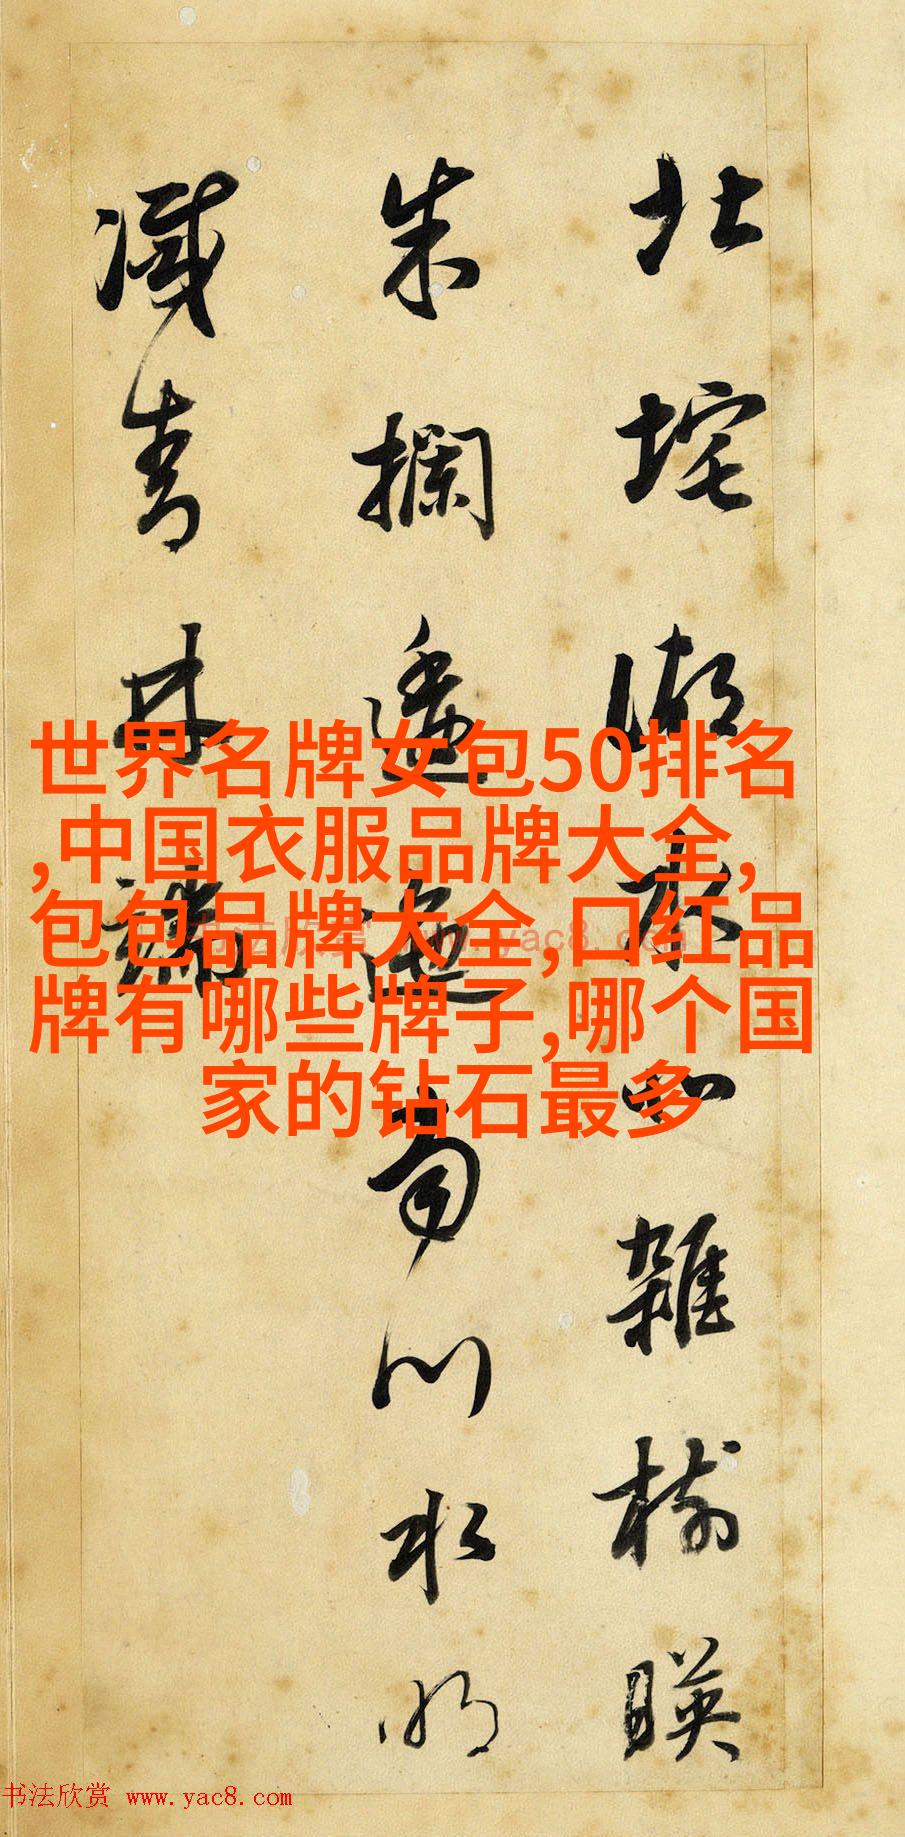 北垞湖水北雜樹暎
朱攔逶迤南川水明
滅青林端
世界名牌女包50排名
,中国衣服品牌大全,
包包品牌大全,口红品
牌有哪些牌子,哪个国
家的钻石最多
书法欣赏 www.yac8.com
书法欣赏 www.yac8.com